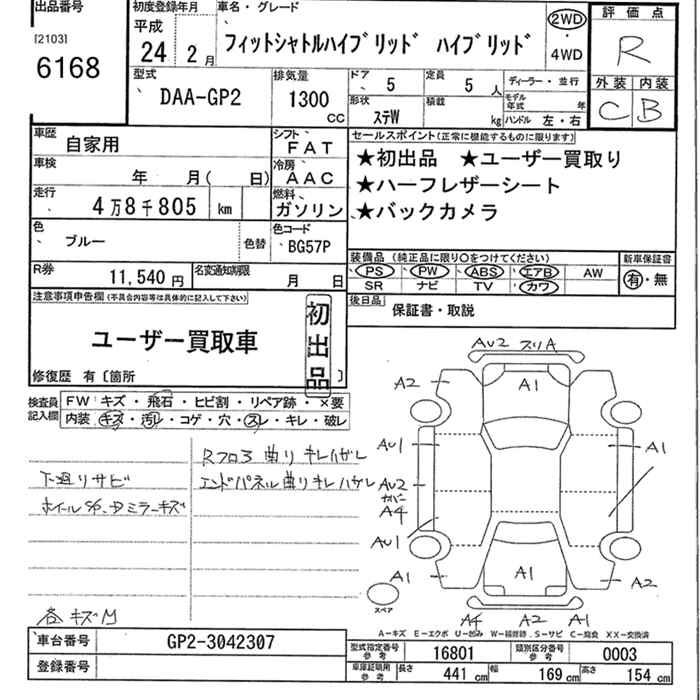 出品番号
[2103]
6168
初度登録年月
平成
24 2月
車名・グレード
フィットシャトルハイブリッド ハイブリッド
2WD
・
4WD
評価点
R
外装 内装
C B
型式
DAA-GP2
排気量
1300
CC
ドア
5
定員
5 人
形状
ステW
積載
kg
ディーラー・並行
モデル年式 年
ハンドル 左・右
車歴
自家用
シフト
FAT
車検
年 月( 日)
冷房
AAC
走行
4万8千805 km
燃料
ガソリン
色
ブルー
色替
色コード
BG57P
R券
11,540 円
名変通知期限
月 日
セールスポイント(正常に機能するものに限ります)
★初出品 ★ユーザー買取り
★ハーフレザーシート
★バックカメラ
装備品 (純正品に限り○をつけてください)
PS PW ABS エアB AW
SR ナビ TV カワ
新車保証書
有・無
後日品
保証書・取説
注意事項申告欄(不具合内容等は具体的に記入して下さい)
ユーザー買取車
初出品
修復歴 有〔箇所 〕
検査員記入欄
FW: キズ・飛石・ヒビ割・リペア跡・×要
内装: キズ・汚レ・コゲ・穴・スレ・キレ・破レ
Rフロア曲リキレハガレ
下廻リサビ
エンドパネル曲リキレハガレ
各キズM
AU2 スリA
A2
A1
AU1
A1
AU2
カバー
A4
AU1
A1
A1
A2
スペア
A4 A2 A1
A-キズ E-エクボ U-凹み W-補修跡 S-サビ C-腐食 XX-交換済
車台番号
GP2-3042307
登録番号
型式指定番号
参考
16801
類別区分番号
参考
0003
車庫証明用
参考
長さ 441 cm
幅 169 cm
高さ 154 cm